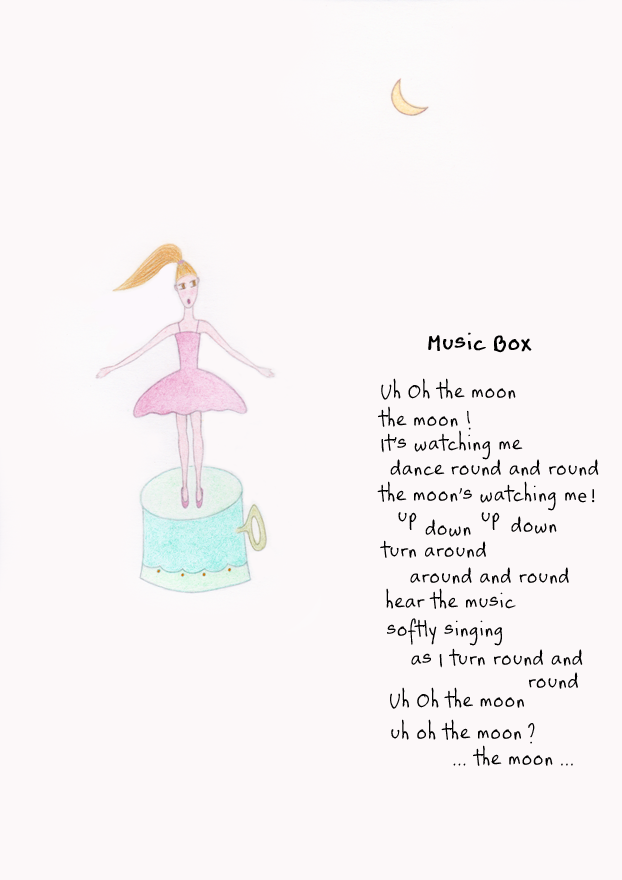 Music Box
Uh Oh the moon
the moon !
It's watching me
dance round and round
the moon's watching me!
up down up down
turn around
around and round
hear the music
softly singing
as I turn round and
round
Uh Oh the moon
uh oh the moon ?
... the moon ...